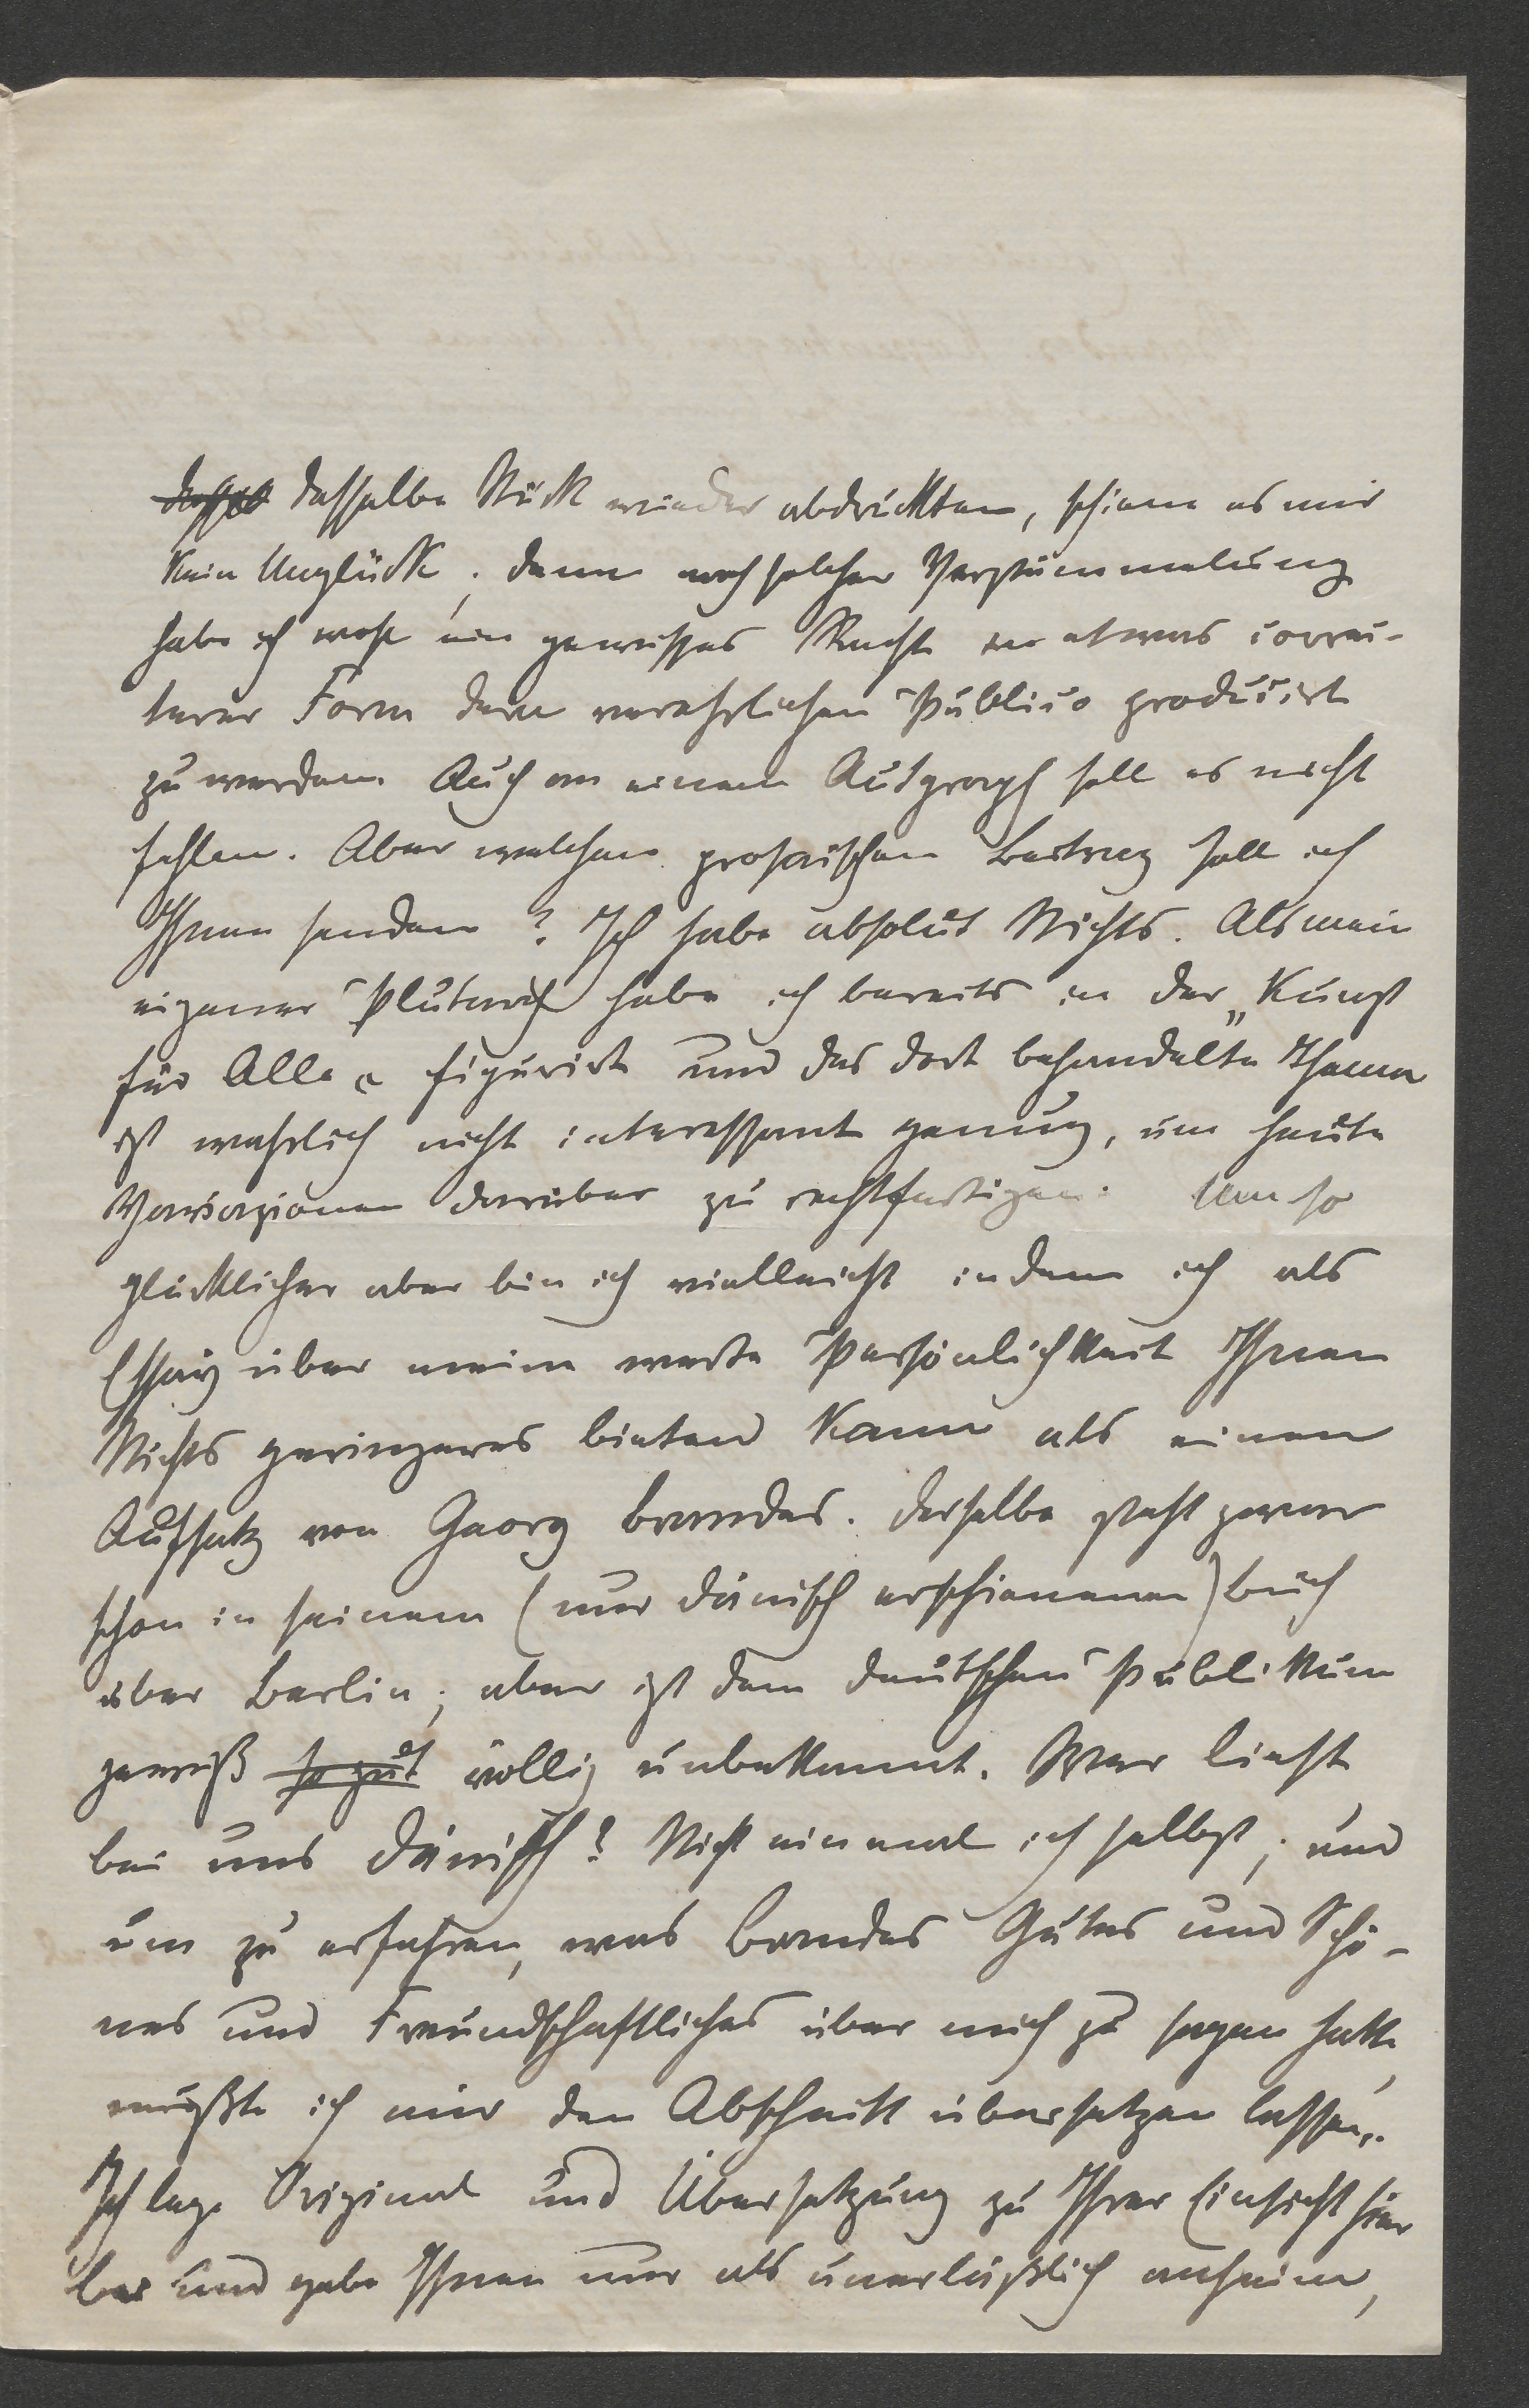 dasselbe Stück wieder abdruckten, schiene es mir
kein Unglück; denn nach solcher Verstümmelung
habe ich wohl ein gewisses Recht in etwas correc-
terer Form dem verehrlichen Publico producirt
zu werden. Auch an einem Autograph soll es nicht
fehlen. Aber welchen prosaischen Beitrag soll ich
Ihnen senden? Ich habe absolut Nichts. Als mein
eigener Plutarch habe ich bereits in der „Kunst
für Alle“ figurirt und das dort behandelte Thema
ist wahrlich nicht interessant genug, um heute
Variazionen darüber zu rechtfertigen. Um so
glücklicher aber bin ich vielleicht indem ich als
Essay über meine werte Persönlichkeit Ihnen
Nichts geringeres bieten kann als einen
Aufsatz von Georg Brandes. Derselbe steht zwar
schon in seinem (nur dänisch erschienenen) Buch
über Berlin; aber ist dem deutschen Publikum
gewiß so gut völlig unbekannt. Wer liest
bei uns Dänisch? Nicht einmal ich selbst; und
um zu erfahren, was Brandes Gutes und Schö-
nes und Freundschaftliches über mich zu sagen hatte,
mußte ich mir den Abschnitt übersetzen lassen.
Ich lege Original und Übersetzung zu Ihrer Einsicht hier
bei und gebe Ihnen nur als unerläßlich anheim,